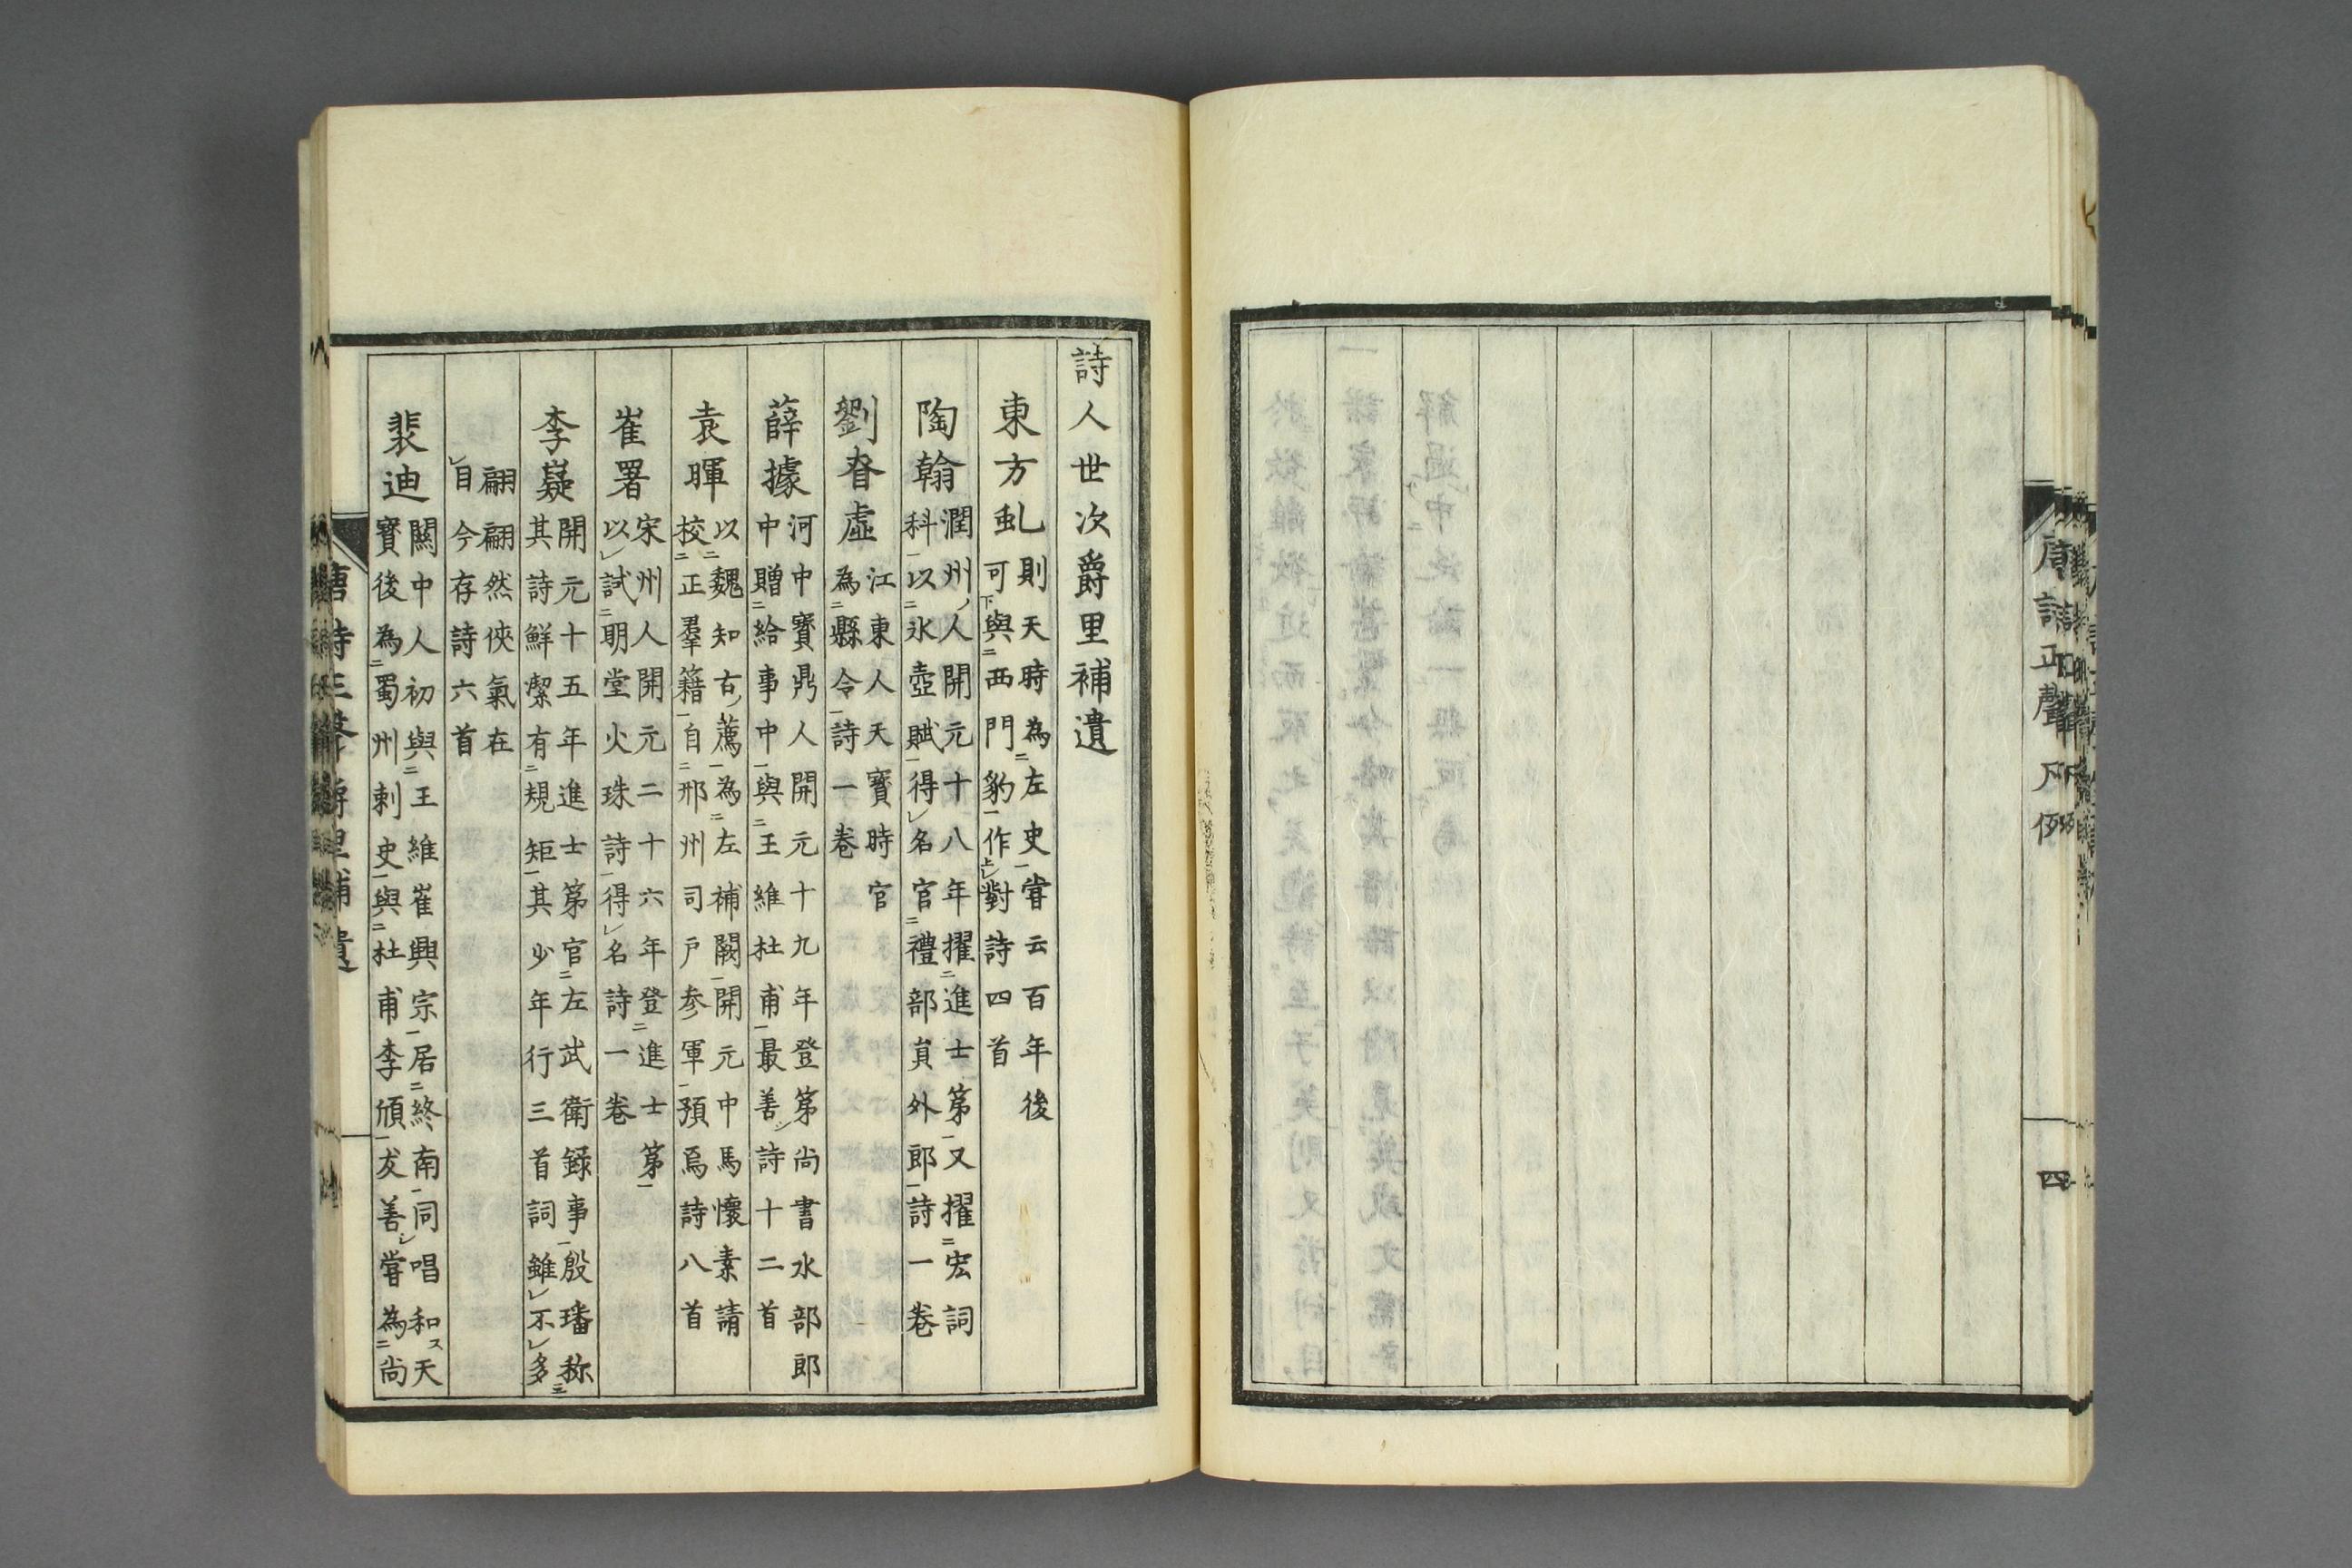 唐詩正聲凡例
四
詩人世次爵里補遺
東方虬
則天時為左史嘗云百年後
可與西門豹作對詩四首
陶翰
潤州人開元十八年擢進士第又擢宏詞
科以氷壺賦得名官禮部員外郎詩一卷
劉昚虛
江東人天寶時官
為縣令詩一卷
薛據
河中寶鼎人開元十九年登第尚書水部郎
中贈給事中與王維杜甫最善詩十二首
袁暉
以魏知古薦為左補闕開元中馬懷素請
校正羣籍自邢州司戶参軍預焉詩八首
崔署
宋州人開元二十六年登進士第
以試明堂火珠詩得名詩一卷
李嶷
開元十五年進士第官左武衛録事殷璠称
其詩鮮潔有規矩其少年行三首詞雖不多
翩翩然俠氣在
目今存詩六首
裴迪
關中人初與王維崔興宗居終南同唱和天
寶後為蜀州刺史與杜甫李頎友善嘗為尚